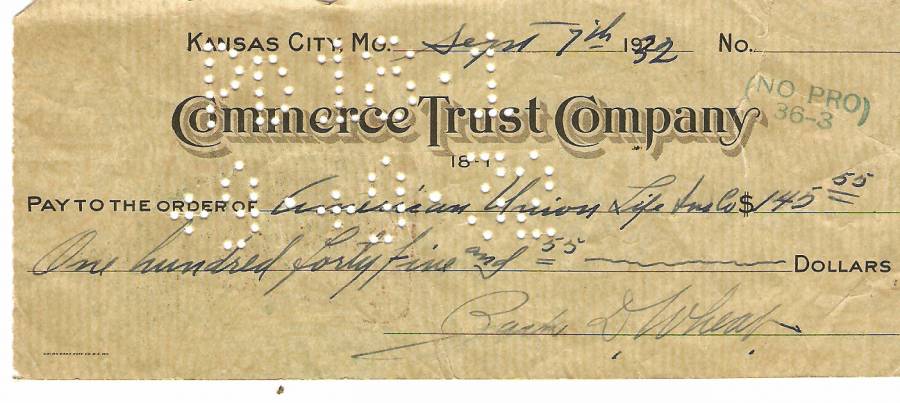 KANSAS CITY, MO. Sept 7th 1932 No.
(NO PRO)
36-3
Commerce Trust Company
18-1
PAY TO THE ORDER OF American Union Life Ins Co $ 145 55
One hundred forty five and 55 DOLLARS
D. Wheat